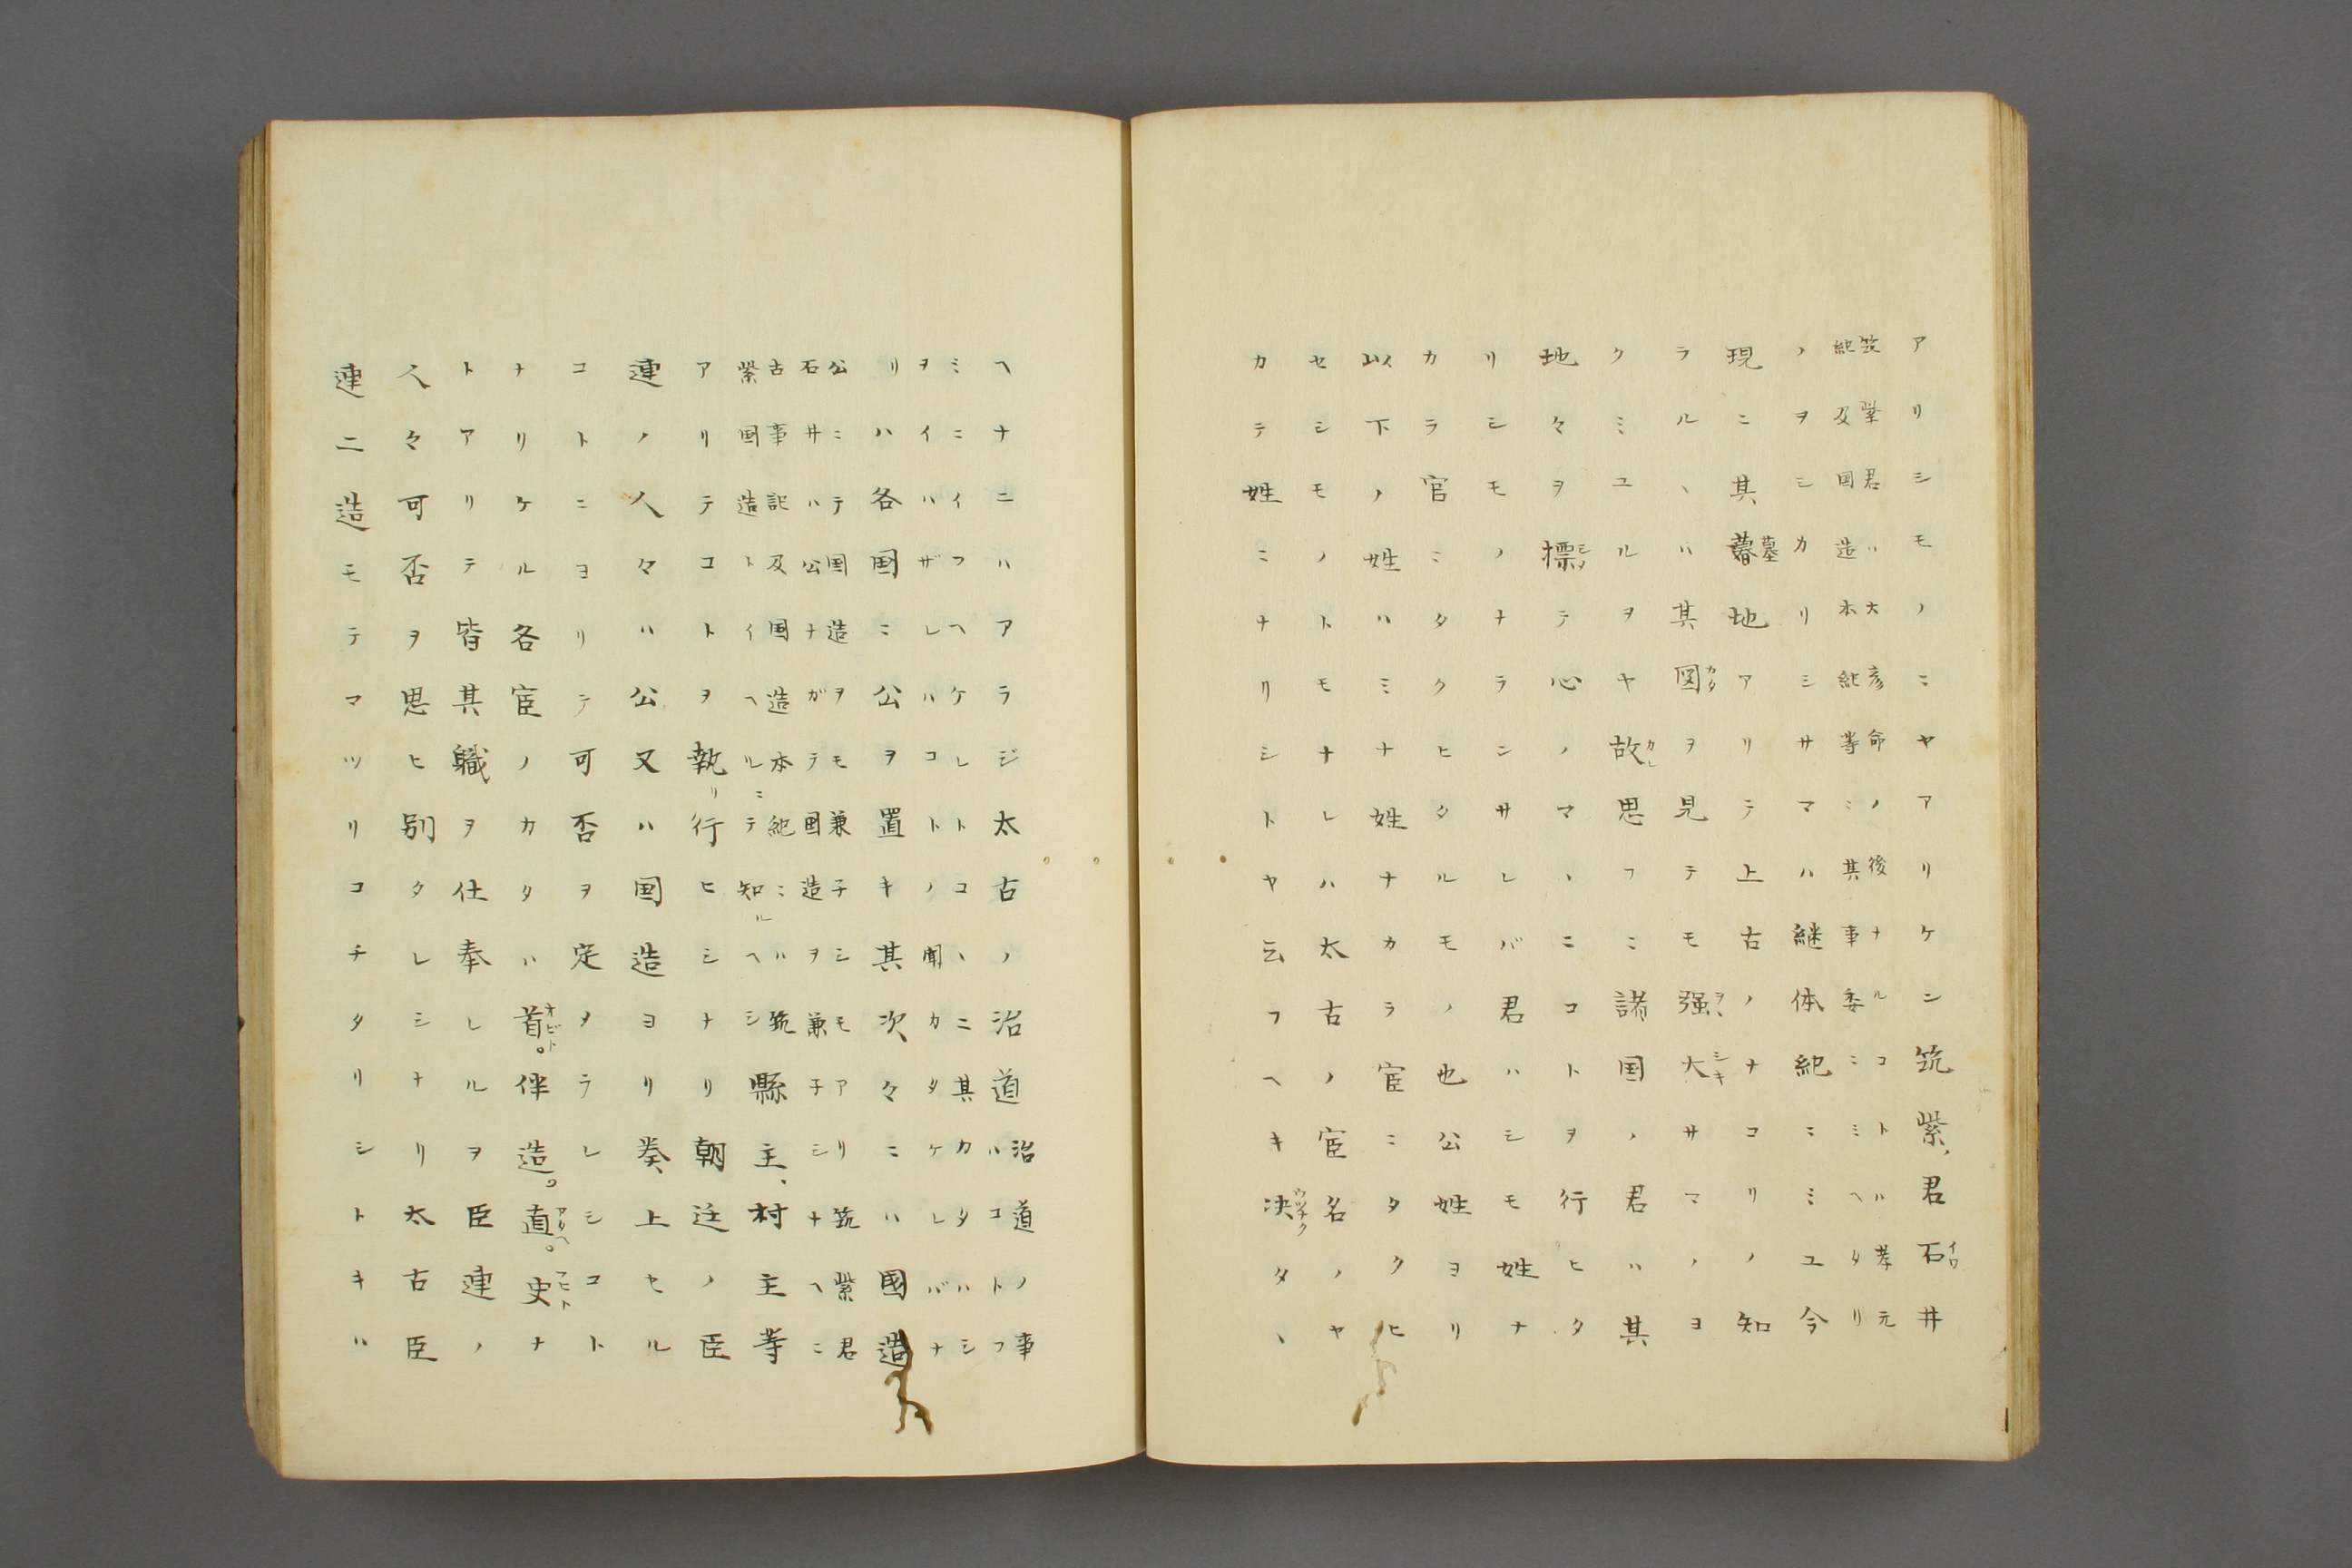 アリシモノニヤアリケン筑紫、君石井
筑紫君ハ大彦命ノ後ナルコトハ孝元
紀及国造本紀等ニ其事委ニミヘタリ
ノヲシカリシサマハ継体紀ニミユ今
現ニ其墓地アリテ上古ノナコリノ知
ラルヽハ其図ヲ見テモ强大サマノヨ
クミユルヲヤ故思フニ諸国ノ君ハ其
地々ヲ標テ心ノマヽニコトヲ行ヒタ
リシモノナランサレバ君ハシモ姓ナ
カラ官ニタクヒタルモノ也公姓ヲヨリ
以下ノ姓ハミナ姓ナカラ官ニタクヒ
セシモノトモナレハ太古ノ官名ノヤ
カテ姓ニナリシトヤ云フヘキ決タヽ
ヘナニハアラジ太古ノ治道治道ノ事
ハコトフ
ミニイフヘケレトコヽニ其カタハシ
ヲイハザレハコトノ聞カタケレバナ
リハ各国ニ公ヲ置キ其次々ニハ國造
公ニテ国造ヲモ兼子シモアリ筑紫君
石井ハ公ナガラ国造ヲ兼子シナヘニ
古事記及国造本紀ニハ筑
紫国造トイヘルニテ知ルヘシ縣主、村主等
アリテコトヲ執リ行ヒシナリ朝廷ノ臣
連ノ人々ハ公又ハ国造ヨリ奏上セル
コトニヨリテ可否ヲ定メラレシコト
ナリケル各官ノカタハ首。伴造。直。史ナ
トアリテ皆其職ヲ仕奉レルヲ臣連ノ
人々可否ヲ思ヒ別タレシナリ太古臣
連二造モテマツリコチタリシトキハ